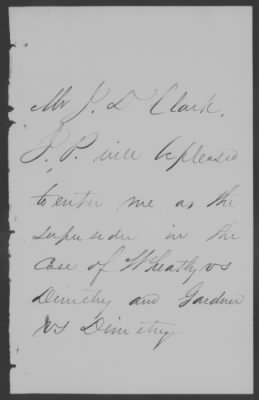 Mr J. D Clark.
J. P. will be pleased
to enter me as the
supersedr in the
Case of Wheatly vs
Dimitry and Gardner
vs Dimitry